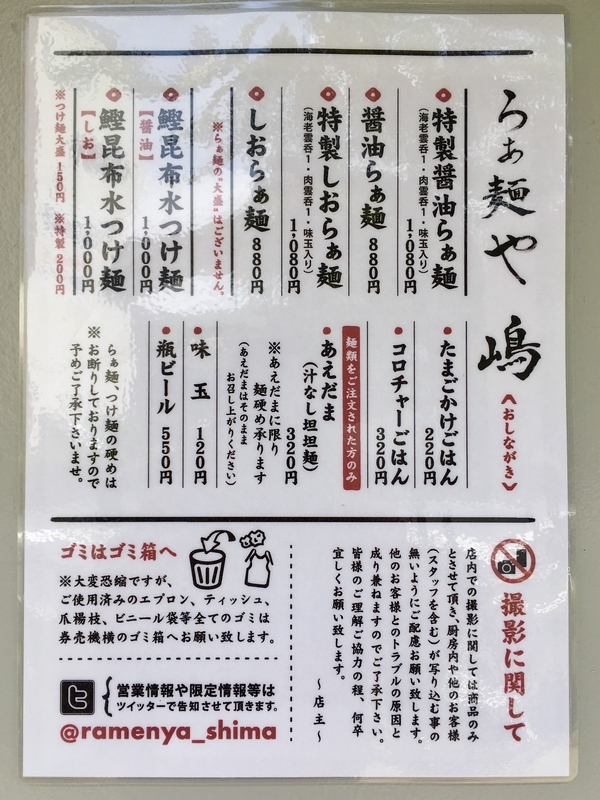 らぁ麺や 嶋
《おしながき》
特製醤油らぁ麺
(海老雲呑1・肉雲呑1・味玉入り)
1,080円
醤油らぁ麺 880円
特製しおらぁ麺
(海老雲呑1・肉雲呑1・味玉入り)
1,080円
しおらぁ麺 880円
※らぁ麺の"大盛"はございません。
鰹昆布水つけ麺
【醤油】
1,000円
鰹昆布水つけ麺
【しお】
1,000円
※つけ麺大盛 150円 ※特製 200円
たまごかけごはん
220円
コロチャーごはん
320円
麺類をご注文された方のみ
あえだま
(汁なし坦坦麺)
320円
※あえだまに限り
麺硬め承ります
(あえだまはそのまま
お召し上がりください)
味玉 120円
瓶ビール 550円
らぁ麺、つけ麺の硬めは
※お断りしておりますので
予めご了承下さいませ。
撮影に関して
店内での撮影に関しては商品のみ
とさせて頂き、厨房内や他のお客様
(スタッフを含む)が写り込む事の
無いようにご配慮お願い致します。
他のお客様とのトラブルの原因と
成り兼ねますのでご了承下さい。
皆様のご理解ご協力の程、何卒
宜しくお願い致します。
〜店主〜
ゴミはゴミ箱へ
※大変恐縮ですが、
ご使用済みのエプロン、ティッシュ、
爪楊枝、ビニール袋等全てのゴミは
券売機横のゴミ箱へお願い致します。
営業情報や限定情報等は
ツイッターで告知させて頂きます。
@ramenya_shima